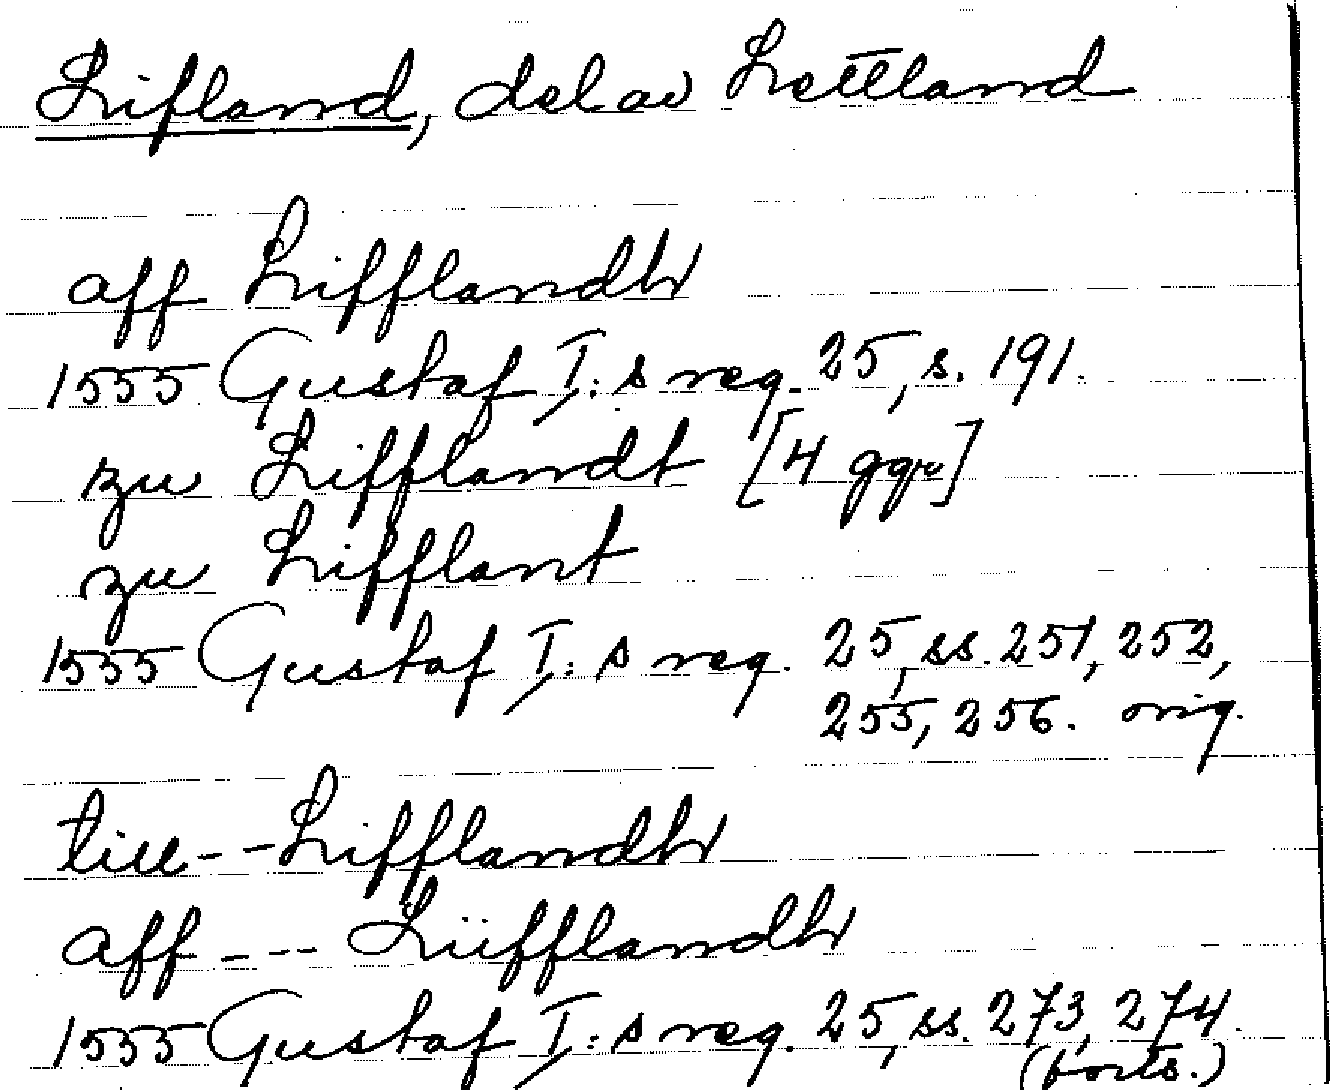 Lifland, del av Lettland
aff Lifflandh
1555 Gustaf I:s reg. 25, s. 191.
zu Lifflandt [4 ggr]
zu Lifflant
1555 Gustaf I:s reg. 25, ss. 251, 252,
255, 256. orig.
till -- Lifflandh
aff --- Liifflandh
1555 Gustaf I:s reg. 25, ss. 273, 274.
(forts.)